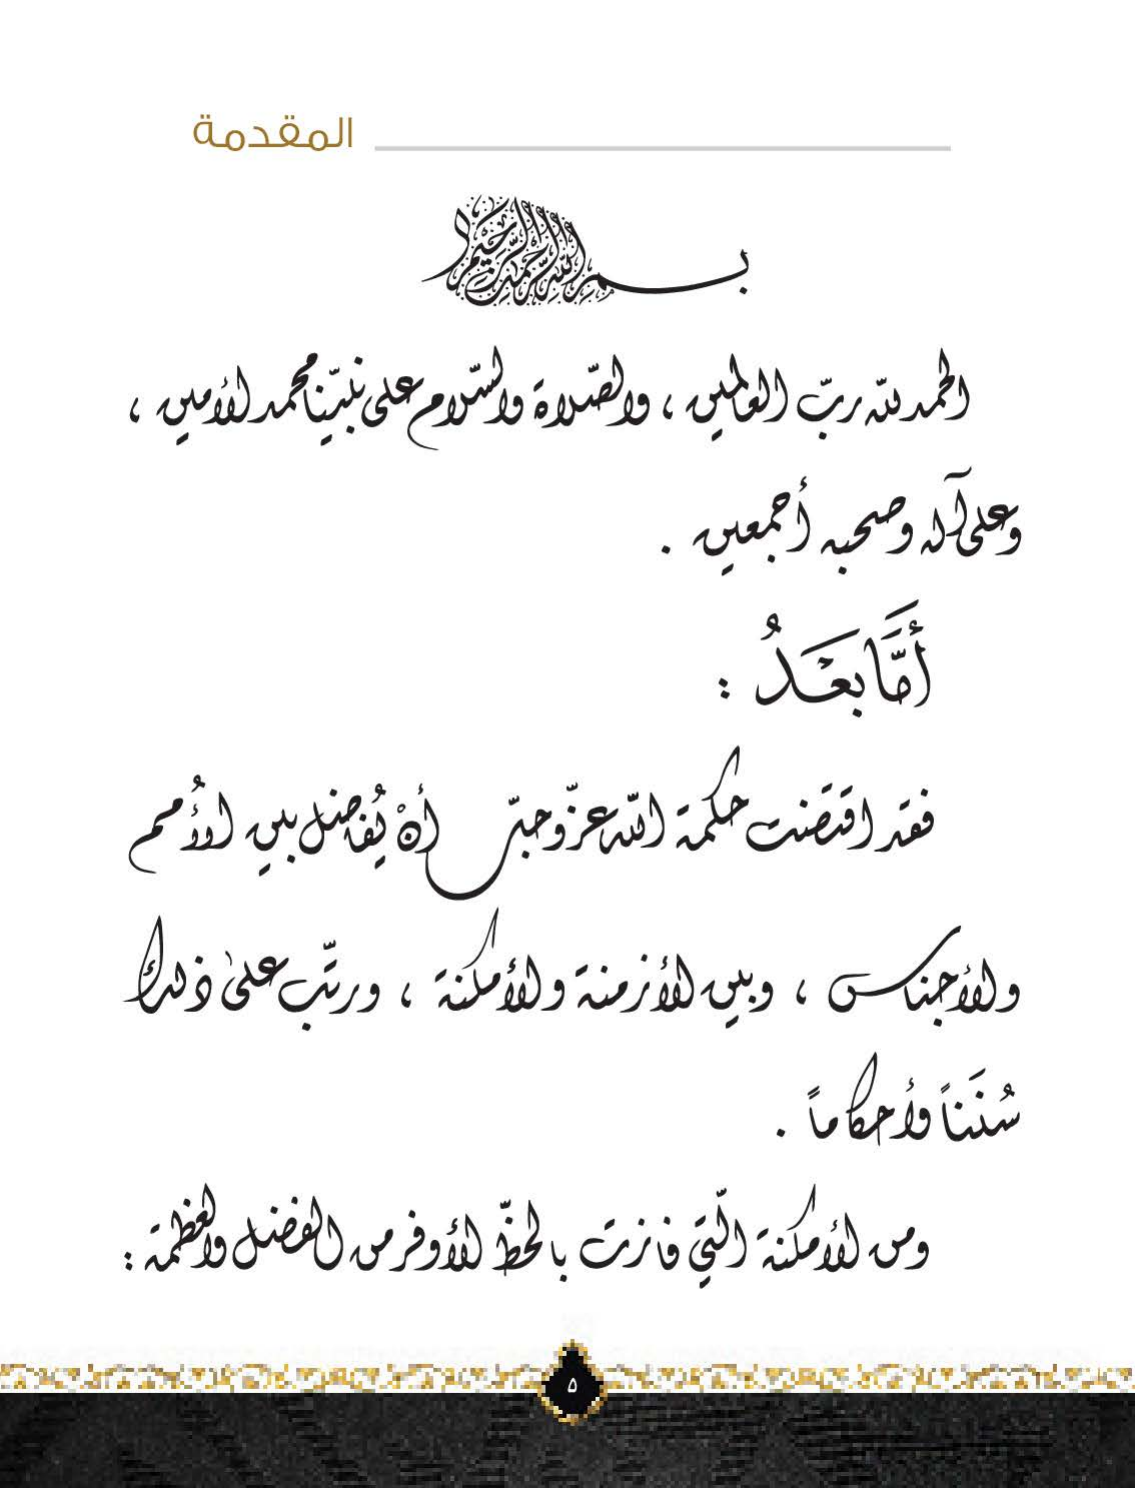 المقدمة
بسم الله الرحمن الرحيم
الحمد لله ربّ العالمين ، والصّلاة والسّلام على نبيّنا محمد الأمين ،
وعلى آله وصحبه أجمعين .
أَمَّا بَعْدُ :
فقد اقتَضَت حكمة الله عزّ وجلّ أنْ يُفاضل بين الأُمم
والأجناس ، وبين الأزمنة والأمكنة ، ورتّب على ذلك
سُنَناً وأحكاماً .
ومن الأمكنة الّتي فازت بالحظّ الأوفر من الفضل والعظمة :
٥